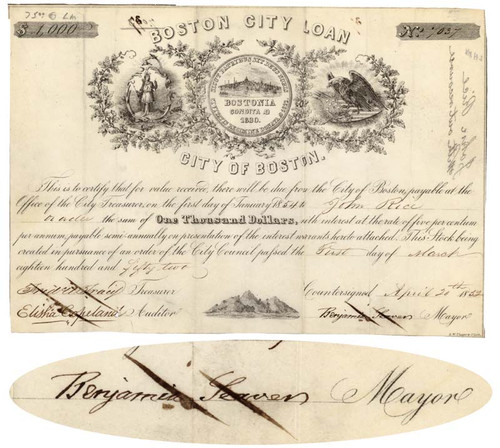 BOSTON CITY LOAN
$1,000
No 7037
BOSTONIA
CONDITA AD
1630.
CITY OF BOSTON.
This is to certify that for value received, there will be due from the City of Boston, payable at the
Office of the City Treasurer, on the first day of January 1864 to John Rice
the sum of One Thousand Dollars, with interest at the rate of five per centum
per annum, payable semi-annually on presentation of the interest warrants hereto attached. This Stock being
created in pursuance of an order of the City Council passed the First day of March
eighteen hundred and fifty two
Treasurer
Countersigned April 20th 1852
Elisha Copeland Auditor
Benjamin Seaver Mayor
Benjamin Seaver Mayor